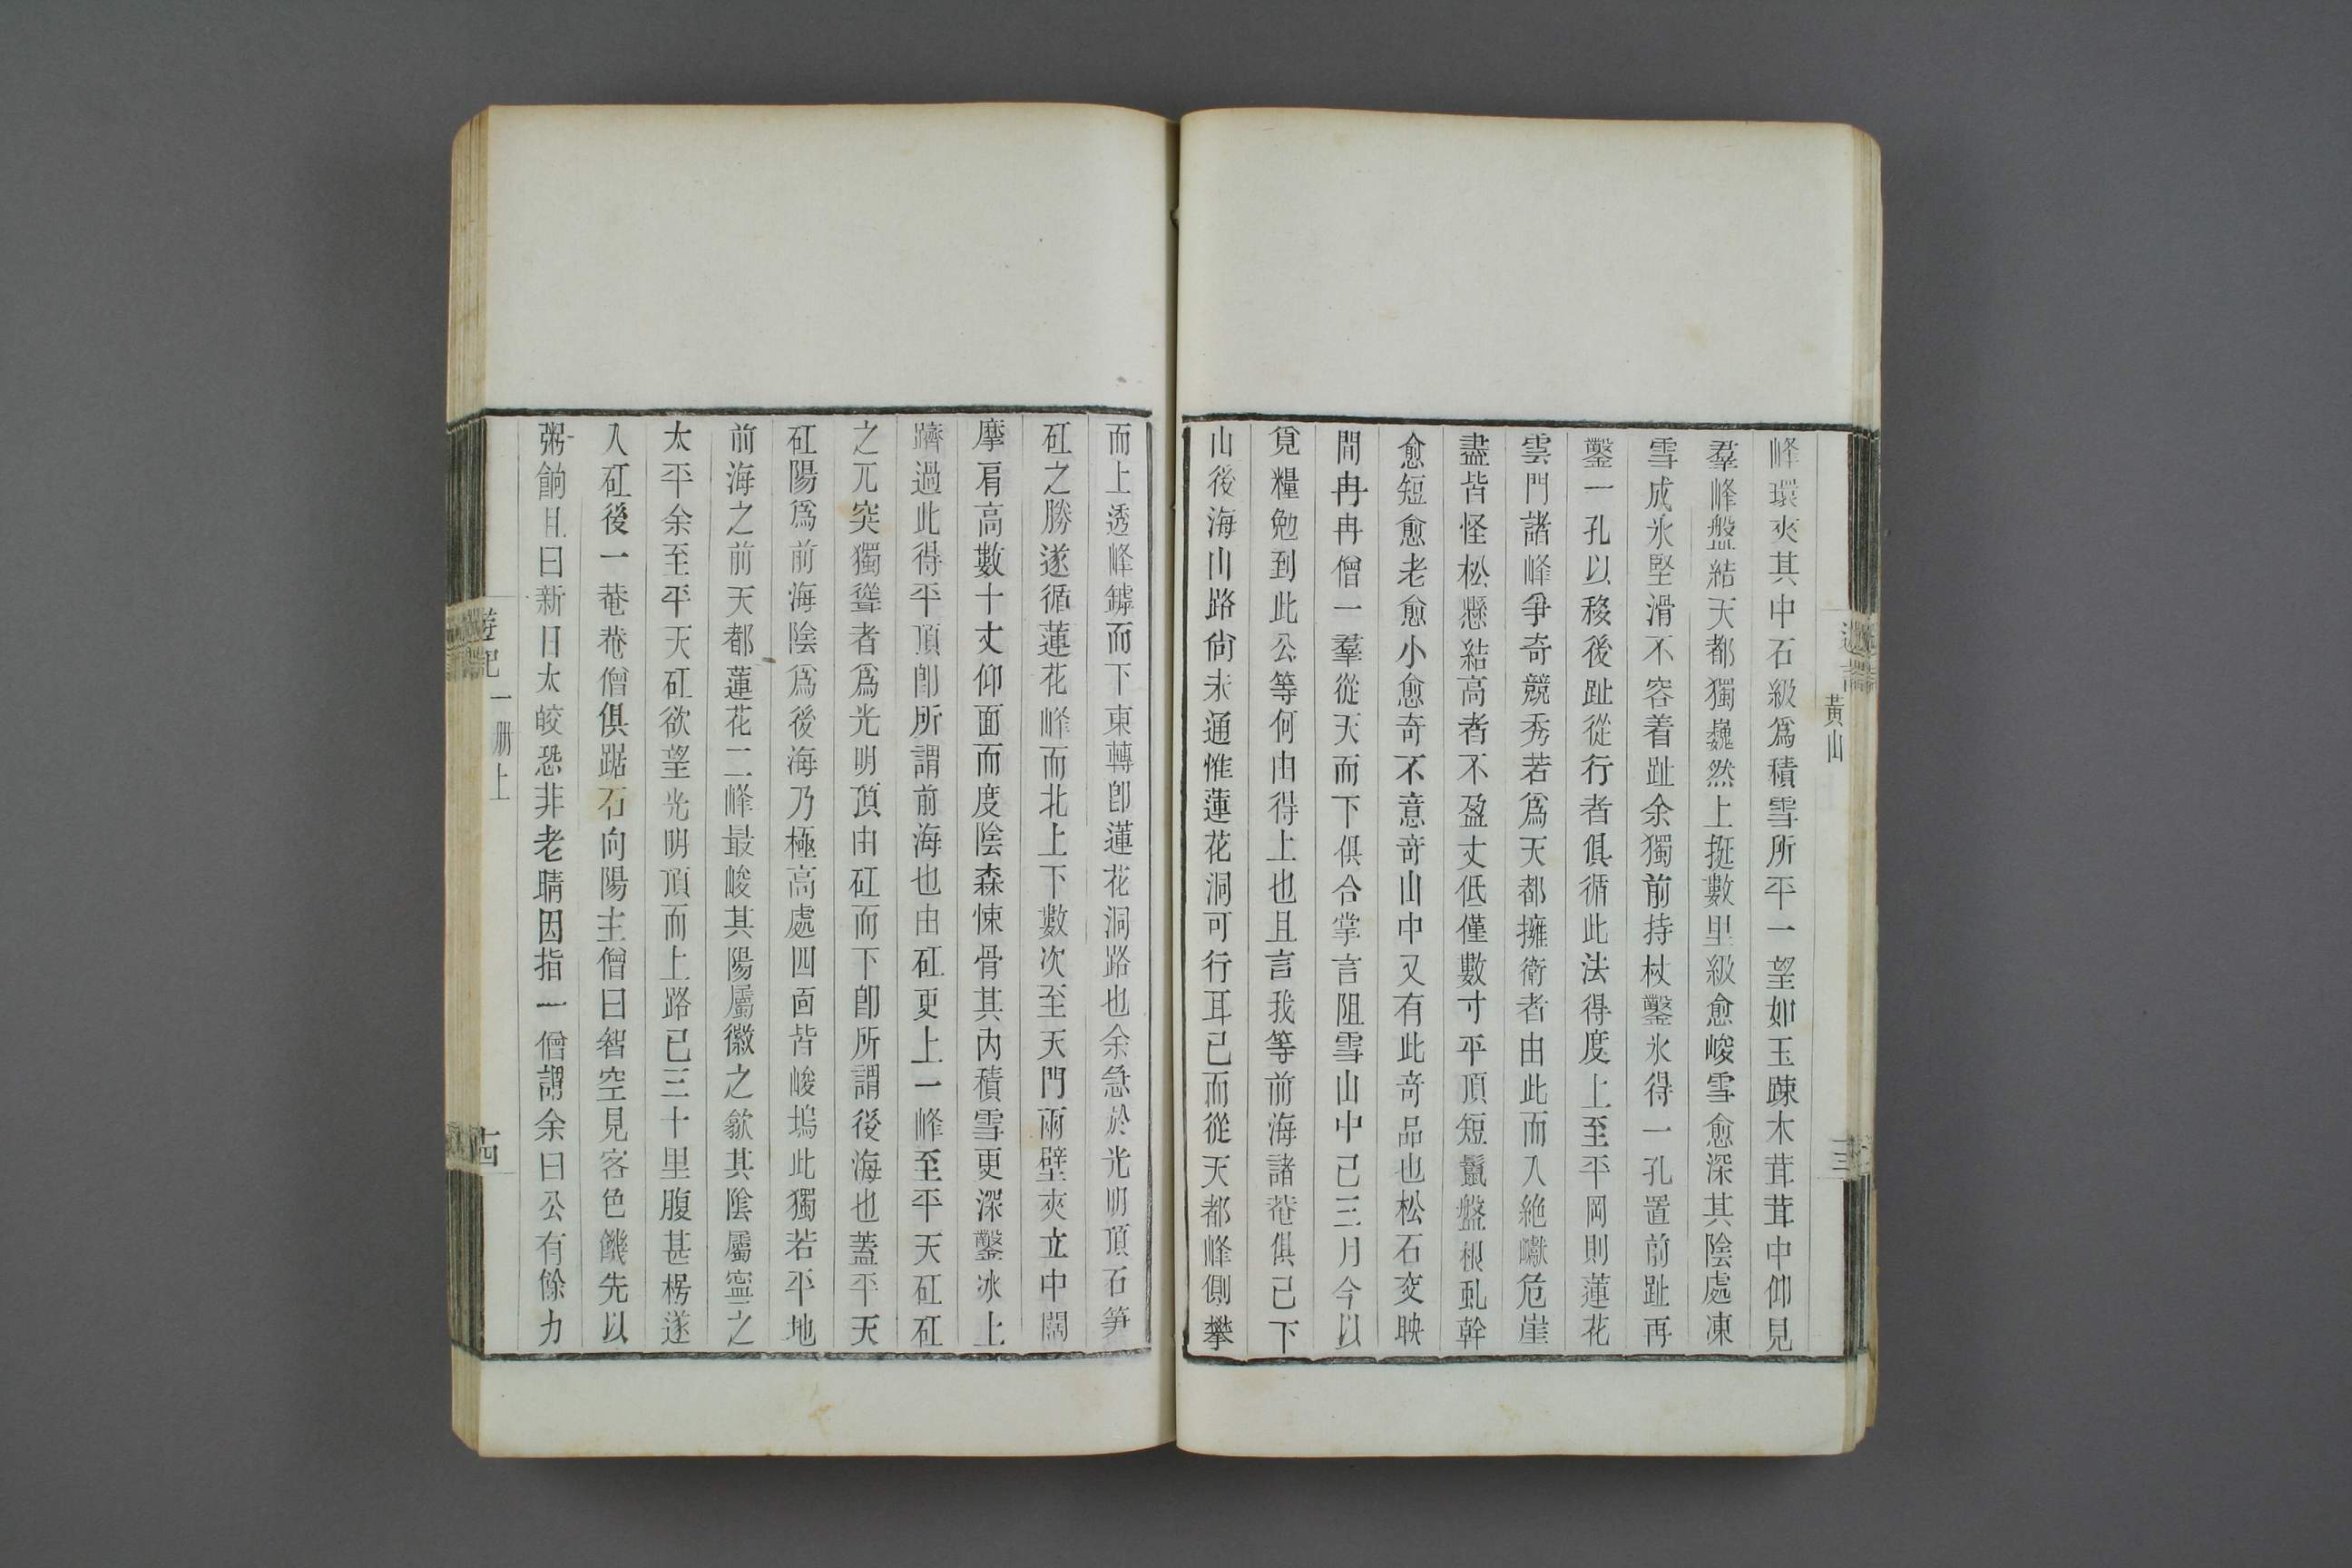 黃山
峰環夾其中石級爲積雪所平一望如玉踈木茸茸中仰見
羣峰盤結天都獨巍然上挺數里級愈峻雪愈深其陰處凍
雪成氷堅滑不容着趾余獨前持杖鑿氷得一孔置前趾再
鑿一孔以移後趾從行者俱循此法得度上至平岡則蓮花
雲門諸峰爭奇競秀若爲天都擁衛者由此而入絶巘危崖
盡皆怪松懸結高者不盈丈低僅數寸平頂短鬣盤根虬幹
愈短愈老愈小愈奇不意奇山中又有此奇品也松石交映
間冉冉僧一羣從天而下俱合掌言阻雪山中已三月今以
覓糧勉到此公等何由得上也且言我等前海諸菴俱已下
山後海山路尙未通惟蓮花洞可行耳已而從天都峰側攀
而上透峰罅而下東轉卽蓮花洞路也余急於光明頂石笋
矼之勝遂循蓮花峰而北上下數次至天門兩壁夾立中闊
摩肩高數十丈仰面而度陰森悚骨其內積雪更深鑿冰上
躋過此得平頂卽所謂前海也由矼更上一峰至平天矼矼
之兀突獨聳者爲光明頂由矼而下卽所謂後海也蓋平天
矼陽爲前海陰爲後海乃極高處四面皆峻塢此獨若平地
前海之前天都蓮花二峰最峻其陽屬徽之歙其陰屬寧之
太平余至平天矼欲望光明頂而上路已三十里腹甚枵遂
入矼後一菴菴僧俱踞石向陽主僧曰智空見客色饑先以
粥餉且曰新日太皎恐非老晴因指一僧謂余曰公有餘力
遊記
一册上
十四